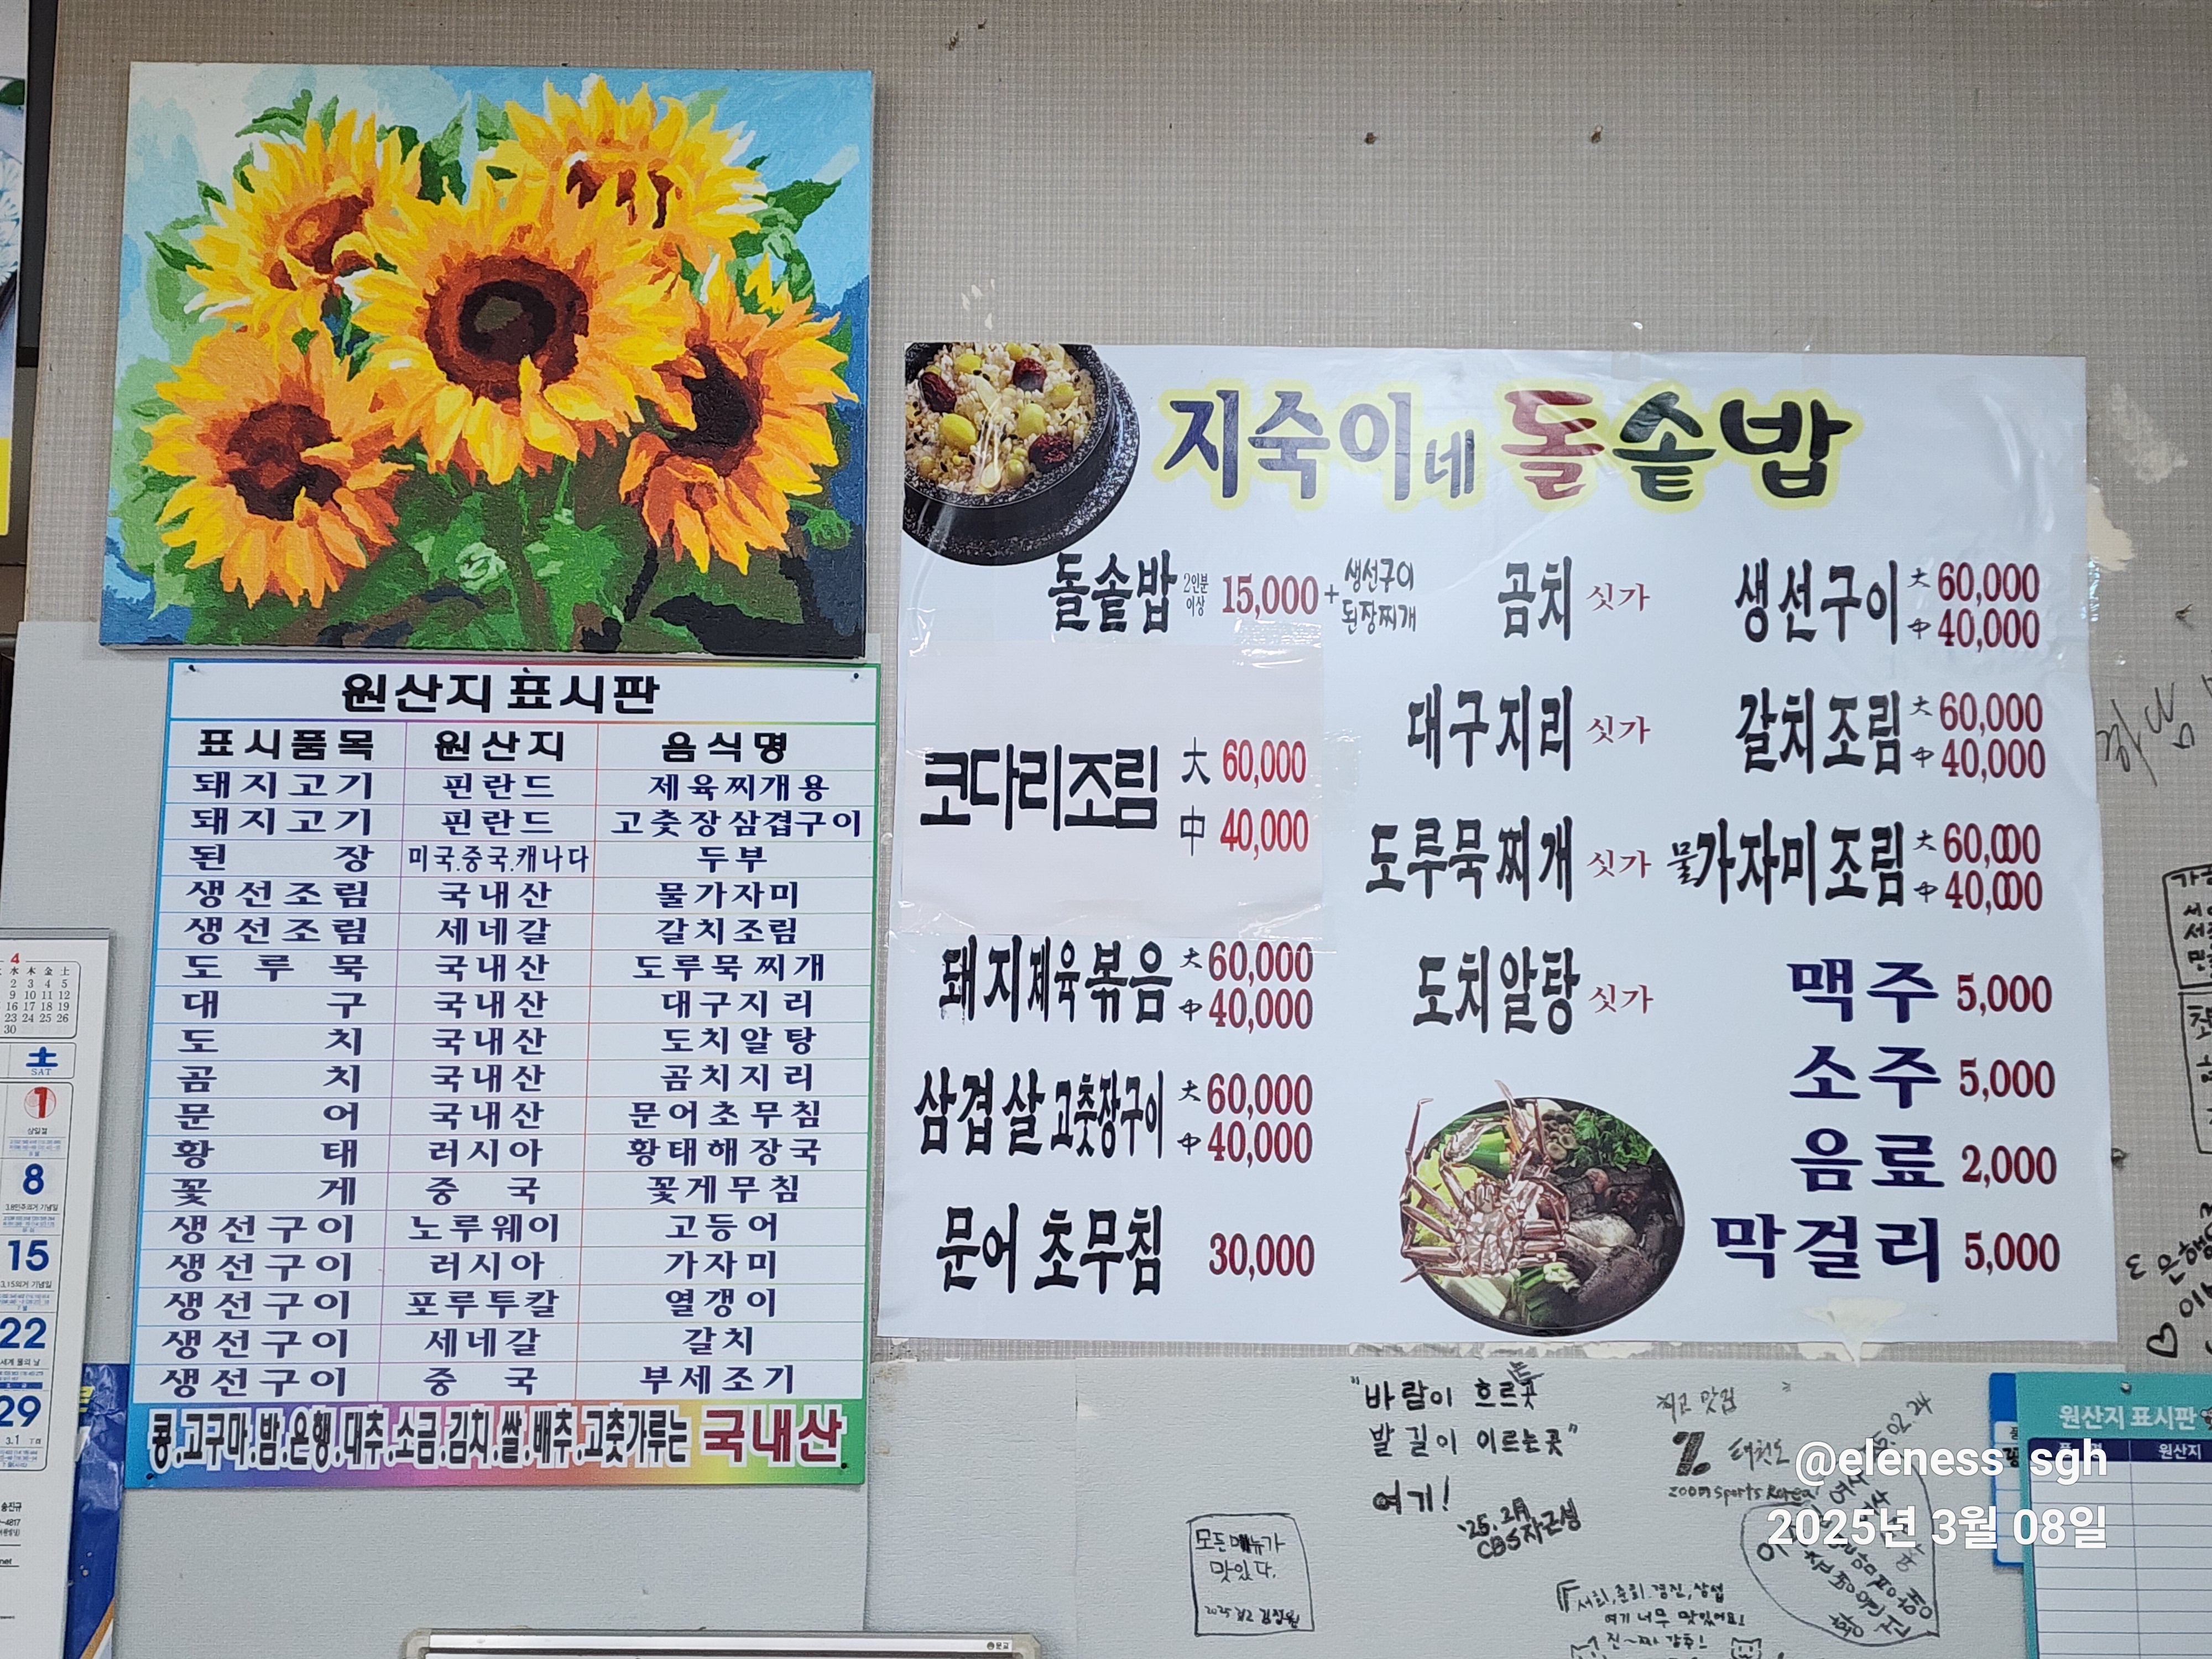 원산지 표시판
표시품목 원산지 음식명
돼지고기 핀란드 제육찌개용
돼지고기 핀란드 고춧장삼겹구이
된장 미국.중국.캐나다 두부
생선조림 국내산 물가자미
생선조림 세네갈 갈치조림
도루묵 국내산 도루묵찌개
대구 국내산 대구지리
도치 국내산 도치알탕
곰치 국내산 곰치지리
문어 국내산 문어초무침
황태 러시아 황태해장국
꽃게 중국 꽃게무침
생선구이 노루웨이 고등어
생선구이 러시아 가자미
생선구이 포루투칼 열갱이
생선구이 세네갈 갈치
생선구이 중국 부세조기
콩.고구마.밤.은행.대추.소금.김치.쌀.배추.고춧가루는 국내산
지숙이네 돌솥밥
돌솥밥 2인분 이상 15,000 + 생선구이 된장찌개
코다리조림 大 60,000
中 40,000
돼지제육볶음 大 60,000
中 40,000
삼겹살고춧장구이 大 60,000
中 40,000
문어 초무침 30,000
곰치 싯가
대구지리 싯가
도루묵찌개 싯가
도치알탕 싯가
생선구이 大 60,000
中 40,000
갈치조림 大 60,000
中 40,000
물가자미조림 大 60,000
中 40,000
맥주 5,000
소주 5,000
음료 2,000
막걸리 5,000
4
水 木 金 土
2 3 4 5
9 10 11 12
16 17 18 19
23 24 25 26
30
土
SAT
1
삼일절
8
3.8민주의거 기념일
15
3.15의거 기념일
22
세계 물의 날
29
3.1
송진규
-4817
"바람이 흐르는곳
발길이 이르는곳"
여기!
'25. 2月
CBS
최고 맛집
태권도
zoom sports Korea
25.02.24
모든 메뉴가
맛있다.
여기 너무 맛있어요!
진~짜 강추!
원산지 표시판
원산지
@eleness_sgh
2025년 3월 08일